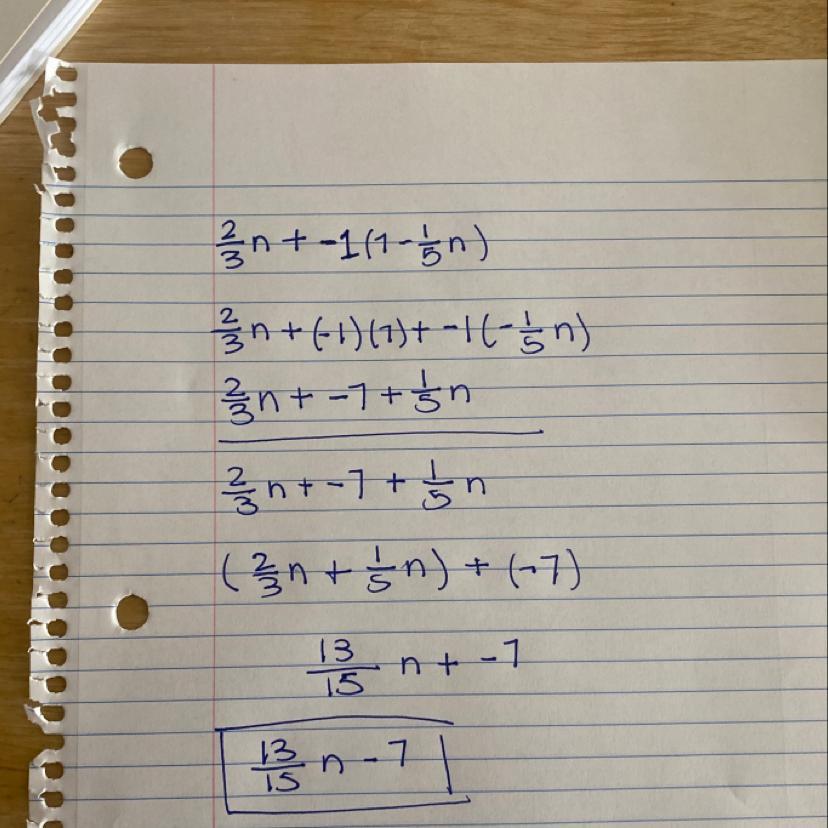 2/3 n + -1(7 - 1/5 n)
2/3 n + (-1)(7) + -1(-1/5 n)
2/3 n + -7 + 1/5 n
2/3 n + -7 + 1/5 n
(2/3 n + 1/5 n) + (-7)
13/15 n + -7
13/15 n - 7